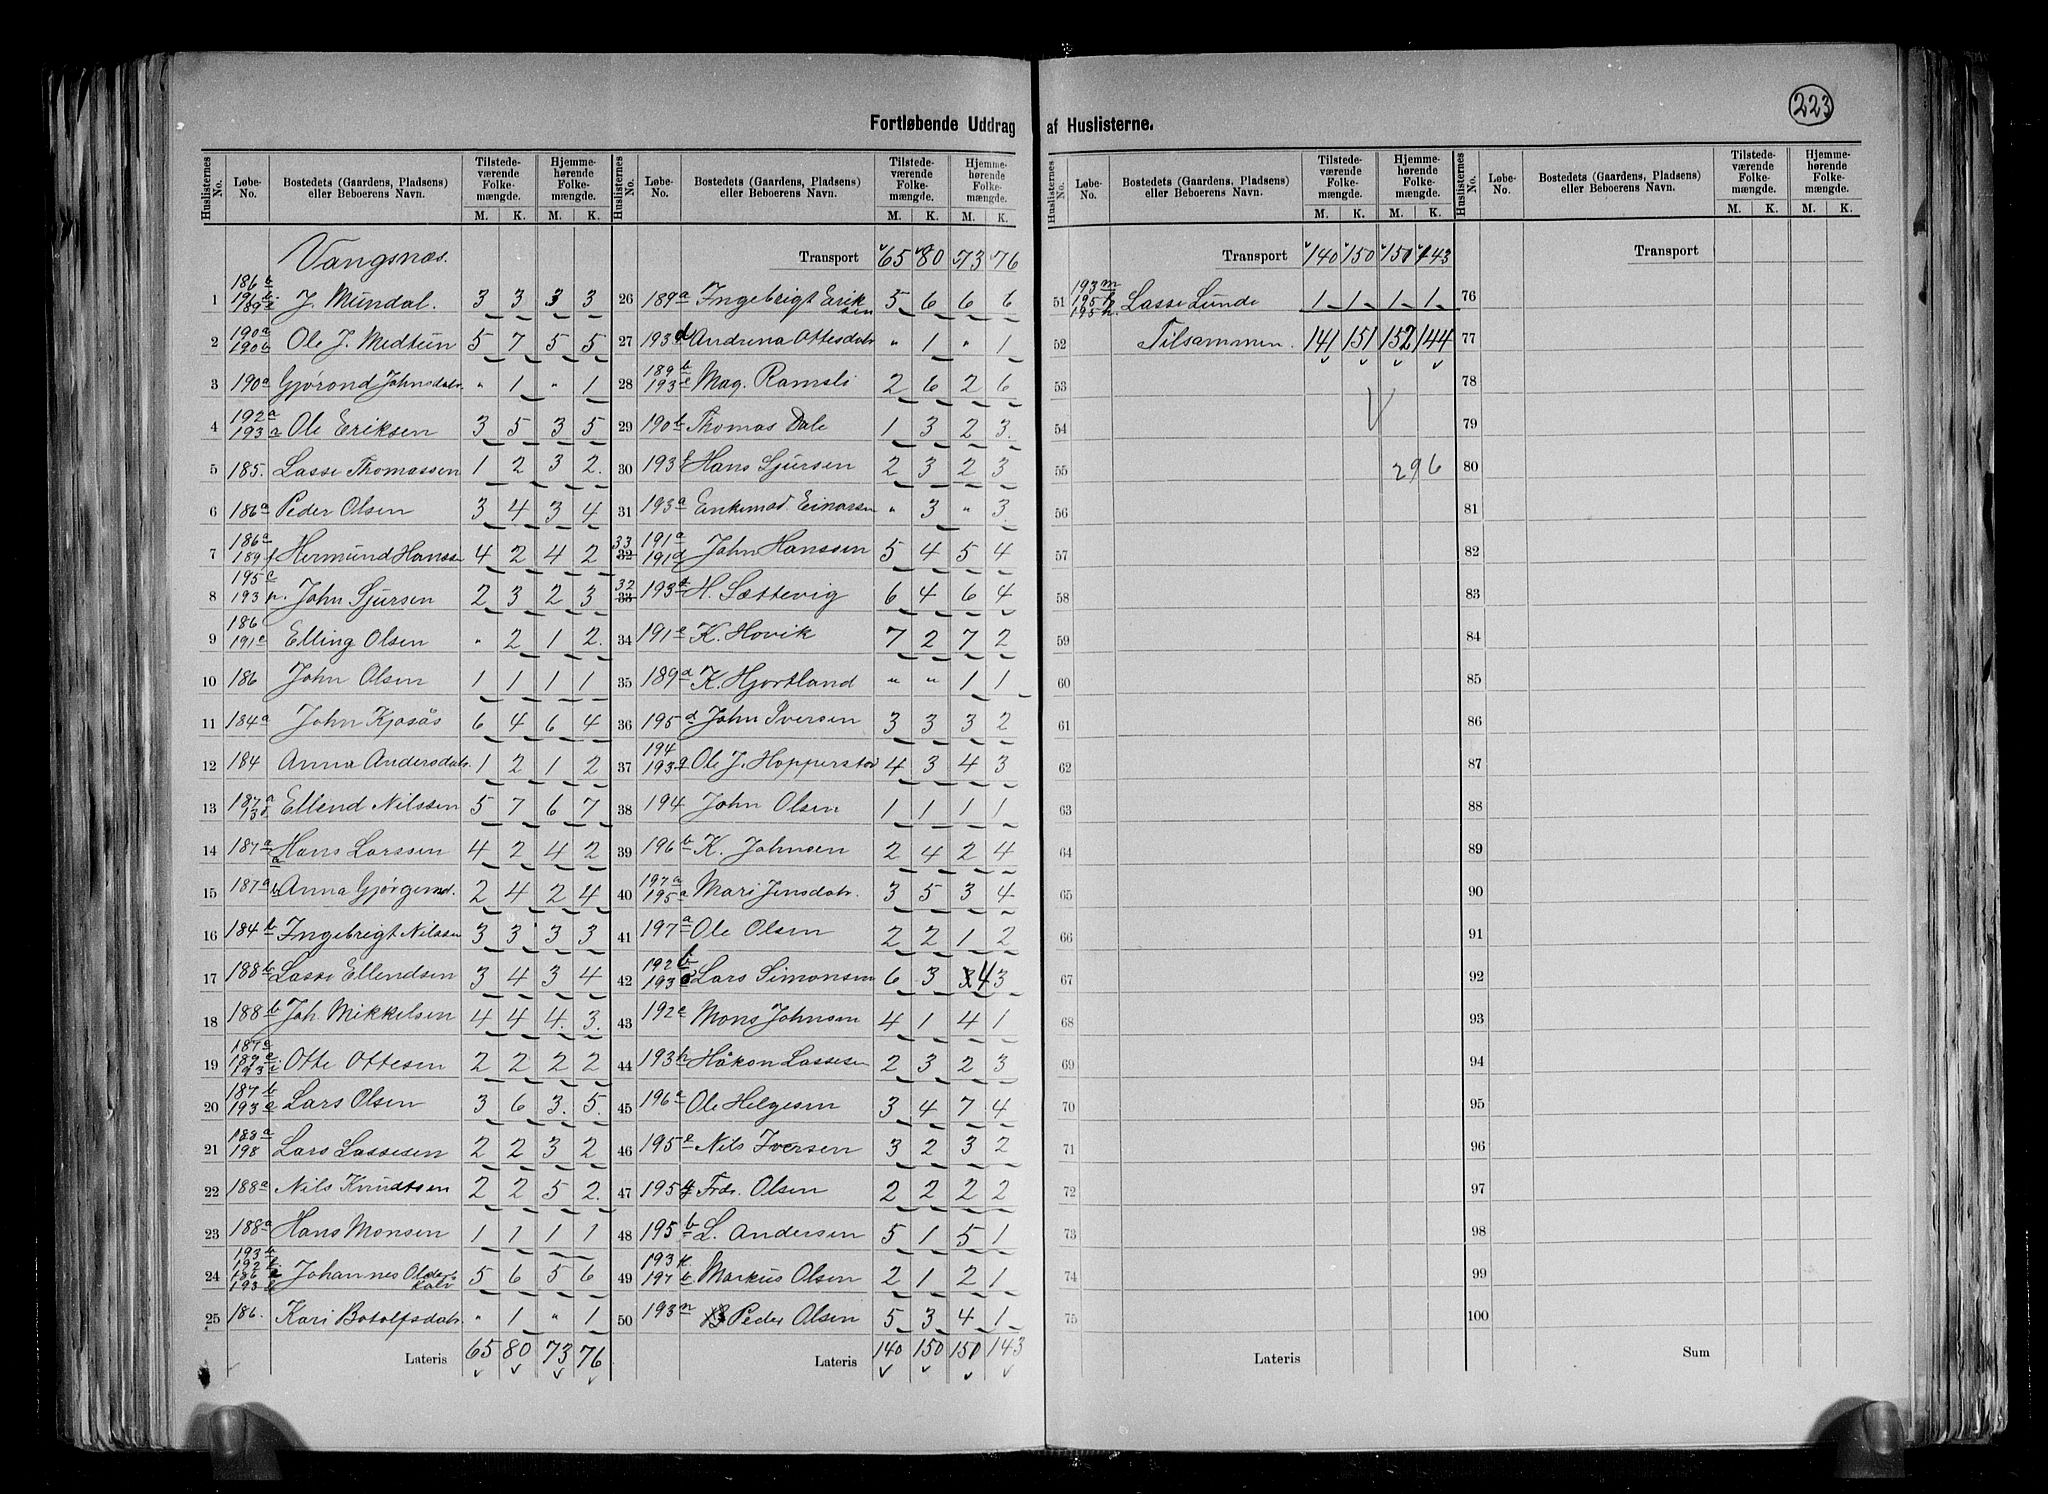 223
Fortløbende Uddrag af Huslisterne.
Huslisternes No. Løbe-No. Bostedets (Gaardens, Pladsens) eller Beboerens Navn. Tilstedeværende Folkemængde. M. K. Hjemmehørende Folkemængde. M. K.
Vangsnæs.
1 186 189 J. Mundal. 3 3 3 3
2 190a 190b Ole J. Medtun 5 7 5 5
3 190a Gjørond Johnsdatr. " 1 " 1
4 192a 193a Ole Eriksen 3 5 3 5
5 185. Lasse Thomassen 1 2 3 2.
6 186a Peder Olsen 3 4 3 4
7 186a 189f Hermund Hanss 4 2 4 2
8 195c 193 John Sjursen 2 3 2 3
9 186 191c Elling Olsen " 2 1 2.
10 186 John Olsen 1 1 1 1
11 184a John Kjosås 6 4 6 4
12 184 Anna Andersdatr. 1 2 1 2
13 187a Ellend Nilssen 5 7 6 7
14 187a Hans Larssen 4 2 4 2
15 187a Anna Gjørgensd. 2 4 2 4
16 184b Ingebrigt Nilssen 3 3 3 3
17 188b Lasse Ellendsen 3 4 3 4
18 188b Joh. Mikkelsen 4 4 4. 3.
19 187a 189 Otte Ottesen 2 2 2 2
20 187b 193 Lars Olsen 3 6 3. 5.
21 188a 198 Lars Lassesen 2 2 3 2
22 188a Nils Knudtsen 2 2 5 2.
23 188a Hans Monsen 1 1 1 1
24 193 192 186 193 Johannes 5 6 5 6
25 186. Kari Botolfsdatr. " 1 " 1
Lateris 65 80 73 76
Huslisternes No. Løbe-No. Bostedets (Gaardens, Pladsens) eller Beboerens Navn. Tilstedeværende Folkemængde. M. K. Hjemmehørende Folkemængde. M. K.
Transport 65 80 73 76
26 189a Ingebrigt Eriksen 5 6 6 6
27 193d Andrina Ottesdatr " 1 " 1
28 189b 193 Mag. Ramsli 2 6 2 6
29 190b Thomas Dale 1 3 2 3.
30 193f Hans Sjursen 2 3 2 3
31 193a Enkemad. Einarsen " 3 " 3.
33 32 191a 191d John Hanssen 5 4 5 4
32 33 193 H. Sættevig 6 4 6 4
34 191e K. Hovik 7 2 7 2
35 189d K. Hjortland " " 1 1
36 195d John Iversen 3 3 3 2
37 194 193 Ole J. Hopperstad 4 3 4 3
38 194 John Olsen 1 1 1 1
39 196b K. Johnsen 2 4 2 4
40 197a 195a Mari Jensdatr. 3 5 3 4
41 197a Ole Olsen 2 2 1 2
42 192b 193 Lars Simonsen 6 3 3 4 3
43 192c Mons Johnsen 4 1 4 1
44 193h Håkon Lassesen 2 3 2 3
45 196a Ole Helgesen 3 4 7 4
46 195e Nils Iversen 3 2 3 2
47 195g Frdr. Olsen 2 2 2 2
48 195b L. Andersen 5 1 5 1
49 193k 197b Markus Olsen 2 1 2 1
50 193n Peder Olsen 5 3 4 1
Lateris 140 150 150 143
Huslisternes No. Løbe-No. Bostedets (Gaardens, Pladsens) eller Beboerens Navn. Tilstedeværende Folkemængde. M. K. Hjemmehørende Folkemængde. M. K.
Transport 140 150 150 143
51 193m 195h Lasse Lunde 1 1 1 1
52 Tilsammen. 141 151 152 144
53
54
55 296
56
57
58
59
60
61
62
63
64
65
66
67
68
69
70
71
72
73
74
75
Lateris
Huslisternes No. Løbe-No. Bostedets (Gaardens, Pladsens) eller Beboerens Navn. Tilstedeværende Folkemængde. M. K. Hjemmehørende Folkemængde. M. K.
Transport
76
77
78
79
80
81
82
83
84
85
86
87
88
89
90
91
92
93
94
95
96
97
98
99
100
Sum